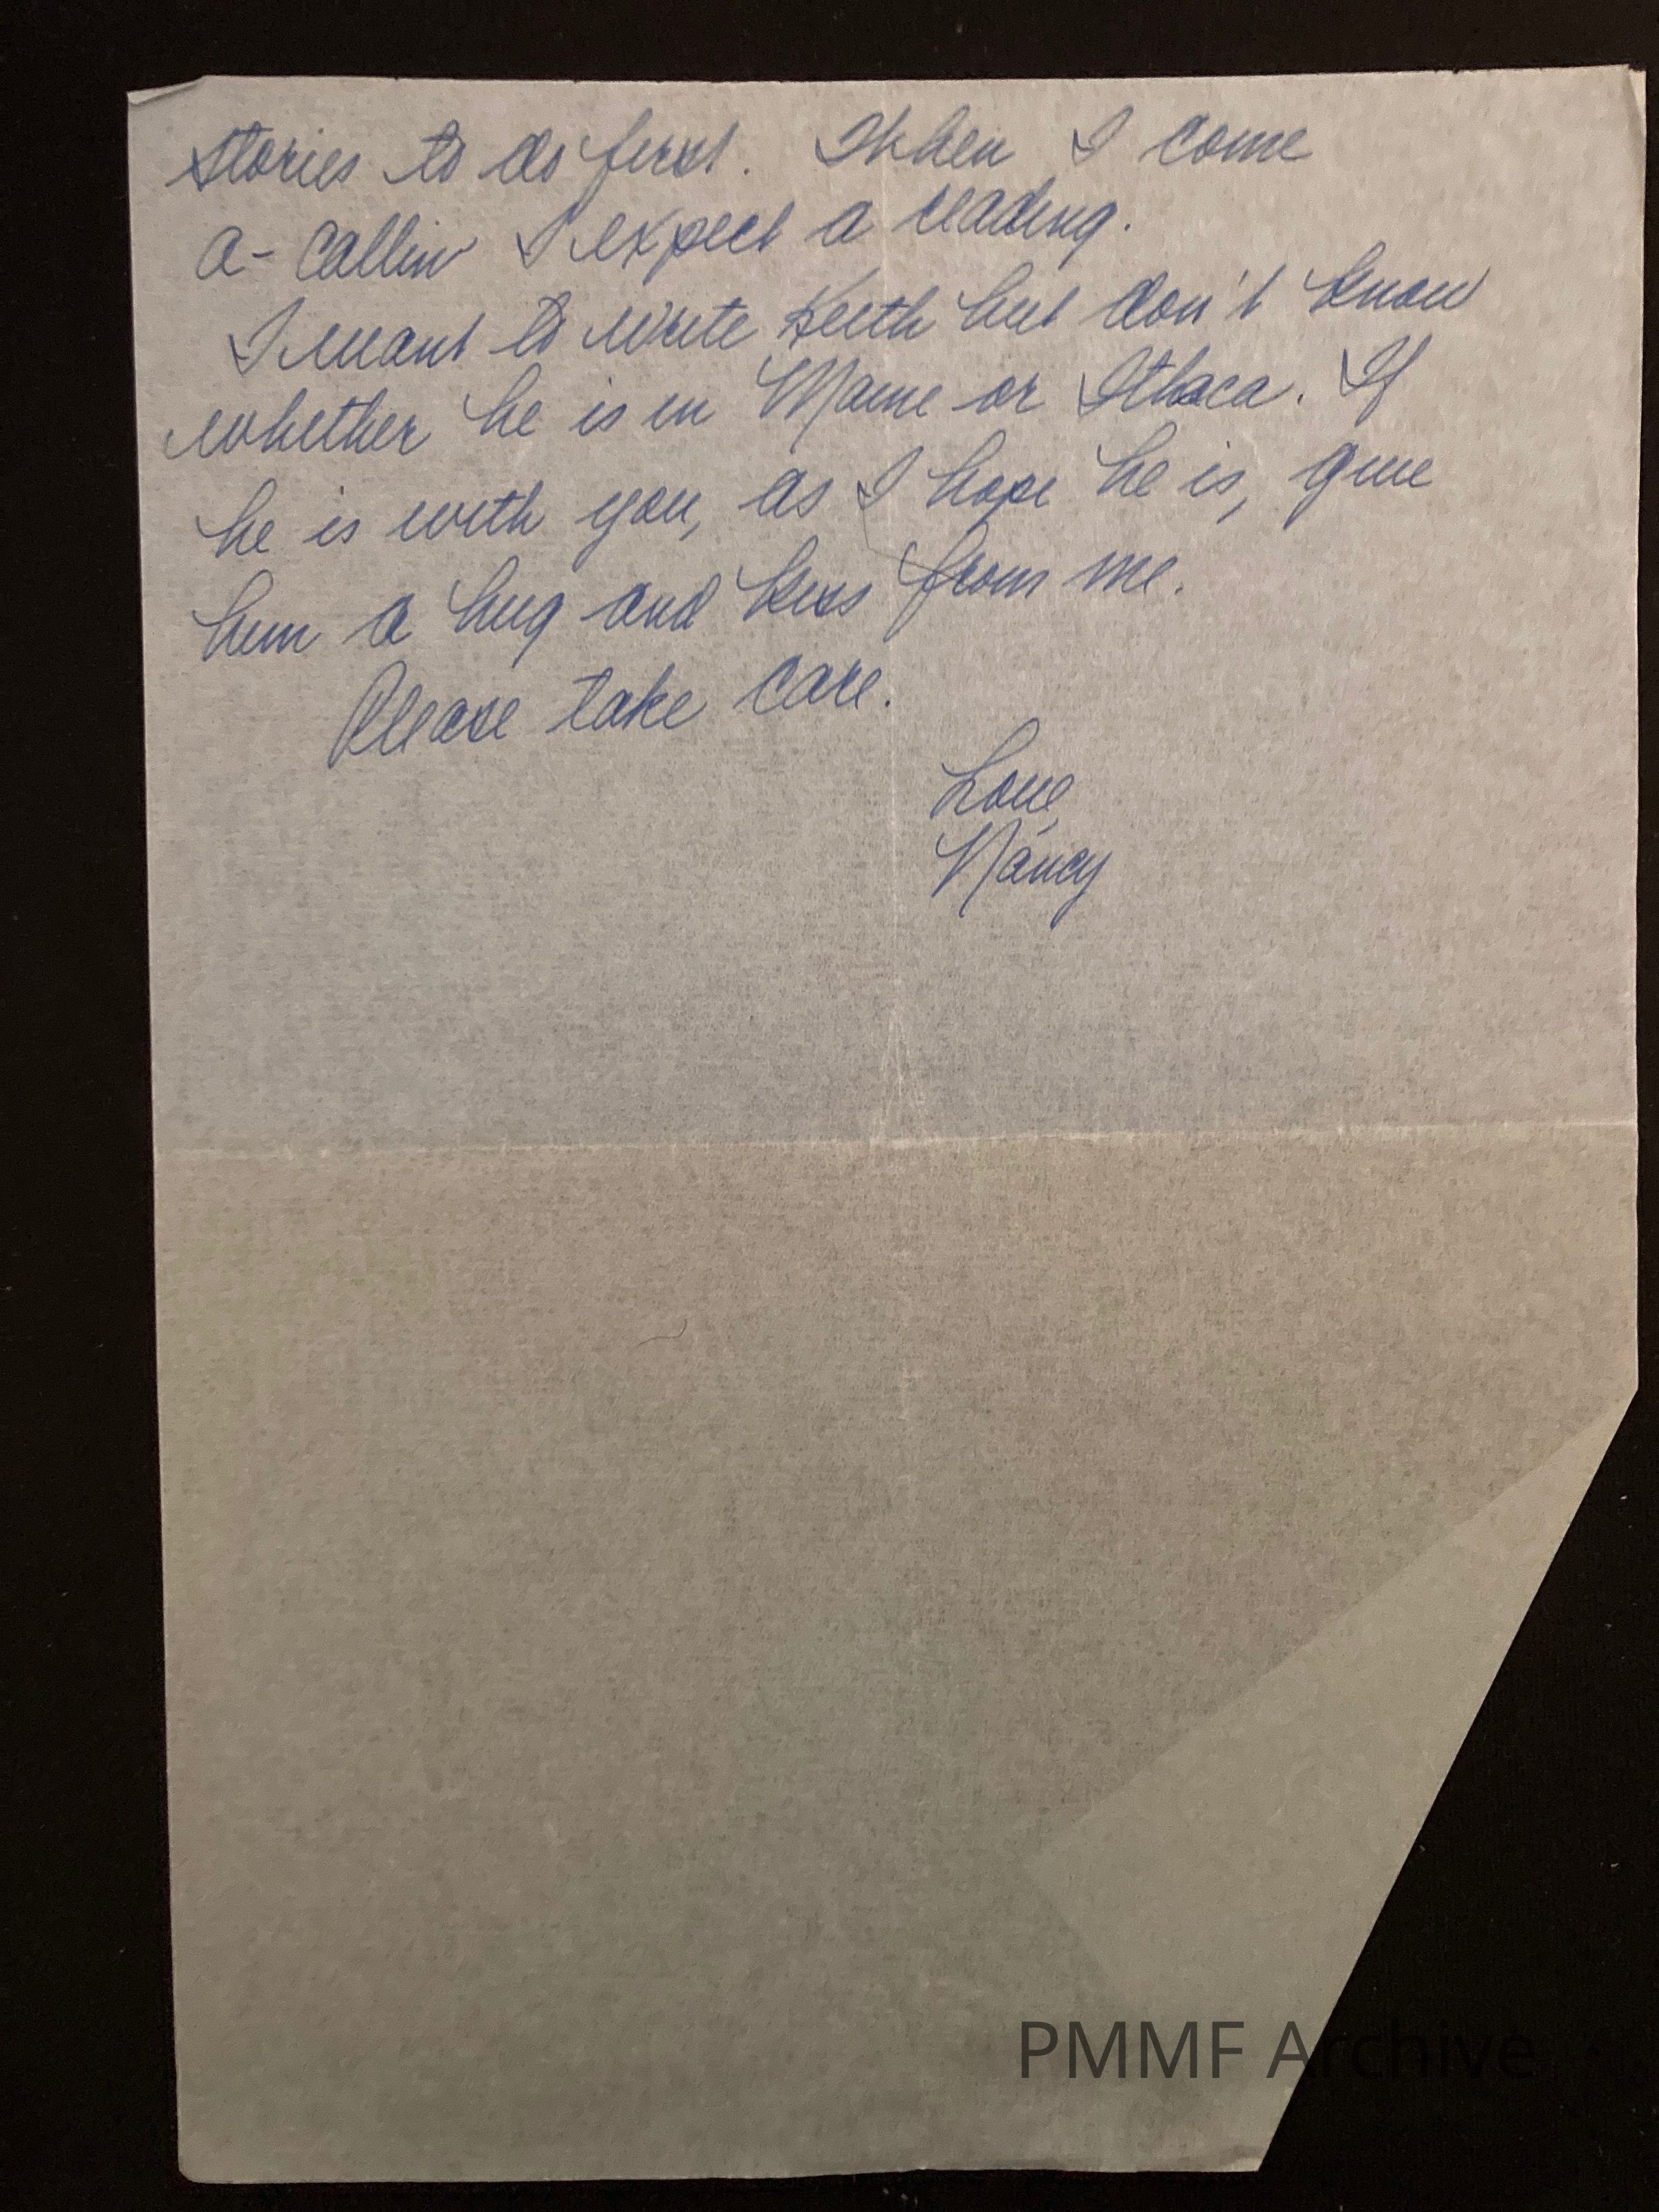 stories to do first. When I come
a-callin I expect a reading.
I want to write Keith but don't know
whether he is in Maine or Ithaca. If
he is with you, as I hope he is, give
him a hug and kiss from me.
Please take care.
Love,
Nancy
PMMF Archive